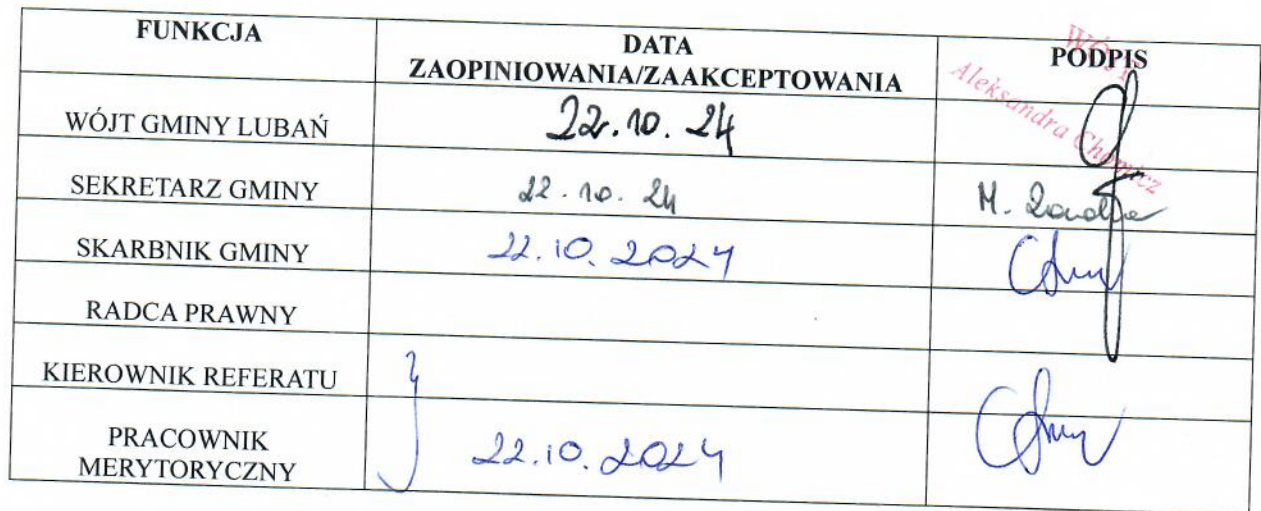 FUNKCJA
DATA
ZAOPINIOWANIA/ZAAKCEPTOWANIA
PODPIS
WÓJT
Aleksandra Chomicz
WÓJT GMINY LUBAŃ
22.10.24
SEKRETARZ GMINY
22.10.24
M.
SKARBNIK GMINY
22.10.2024
RADCA PRAWNY
KIEROWNIK REFERATU
PRACOWNIK
MERYTORYCZNY
22.10.2024